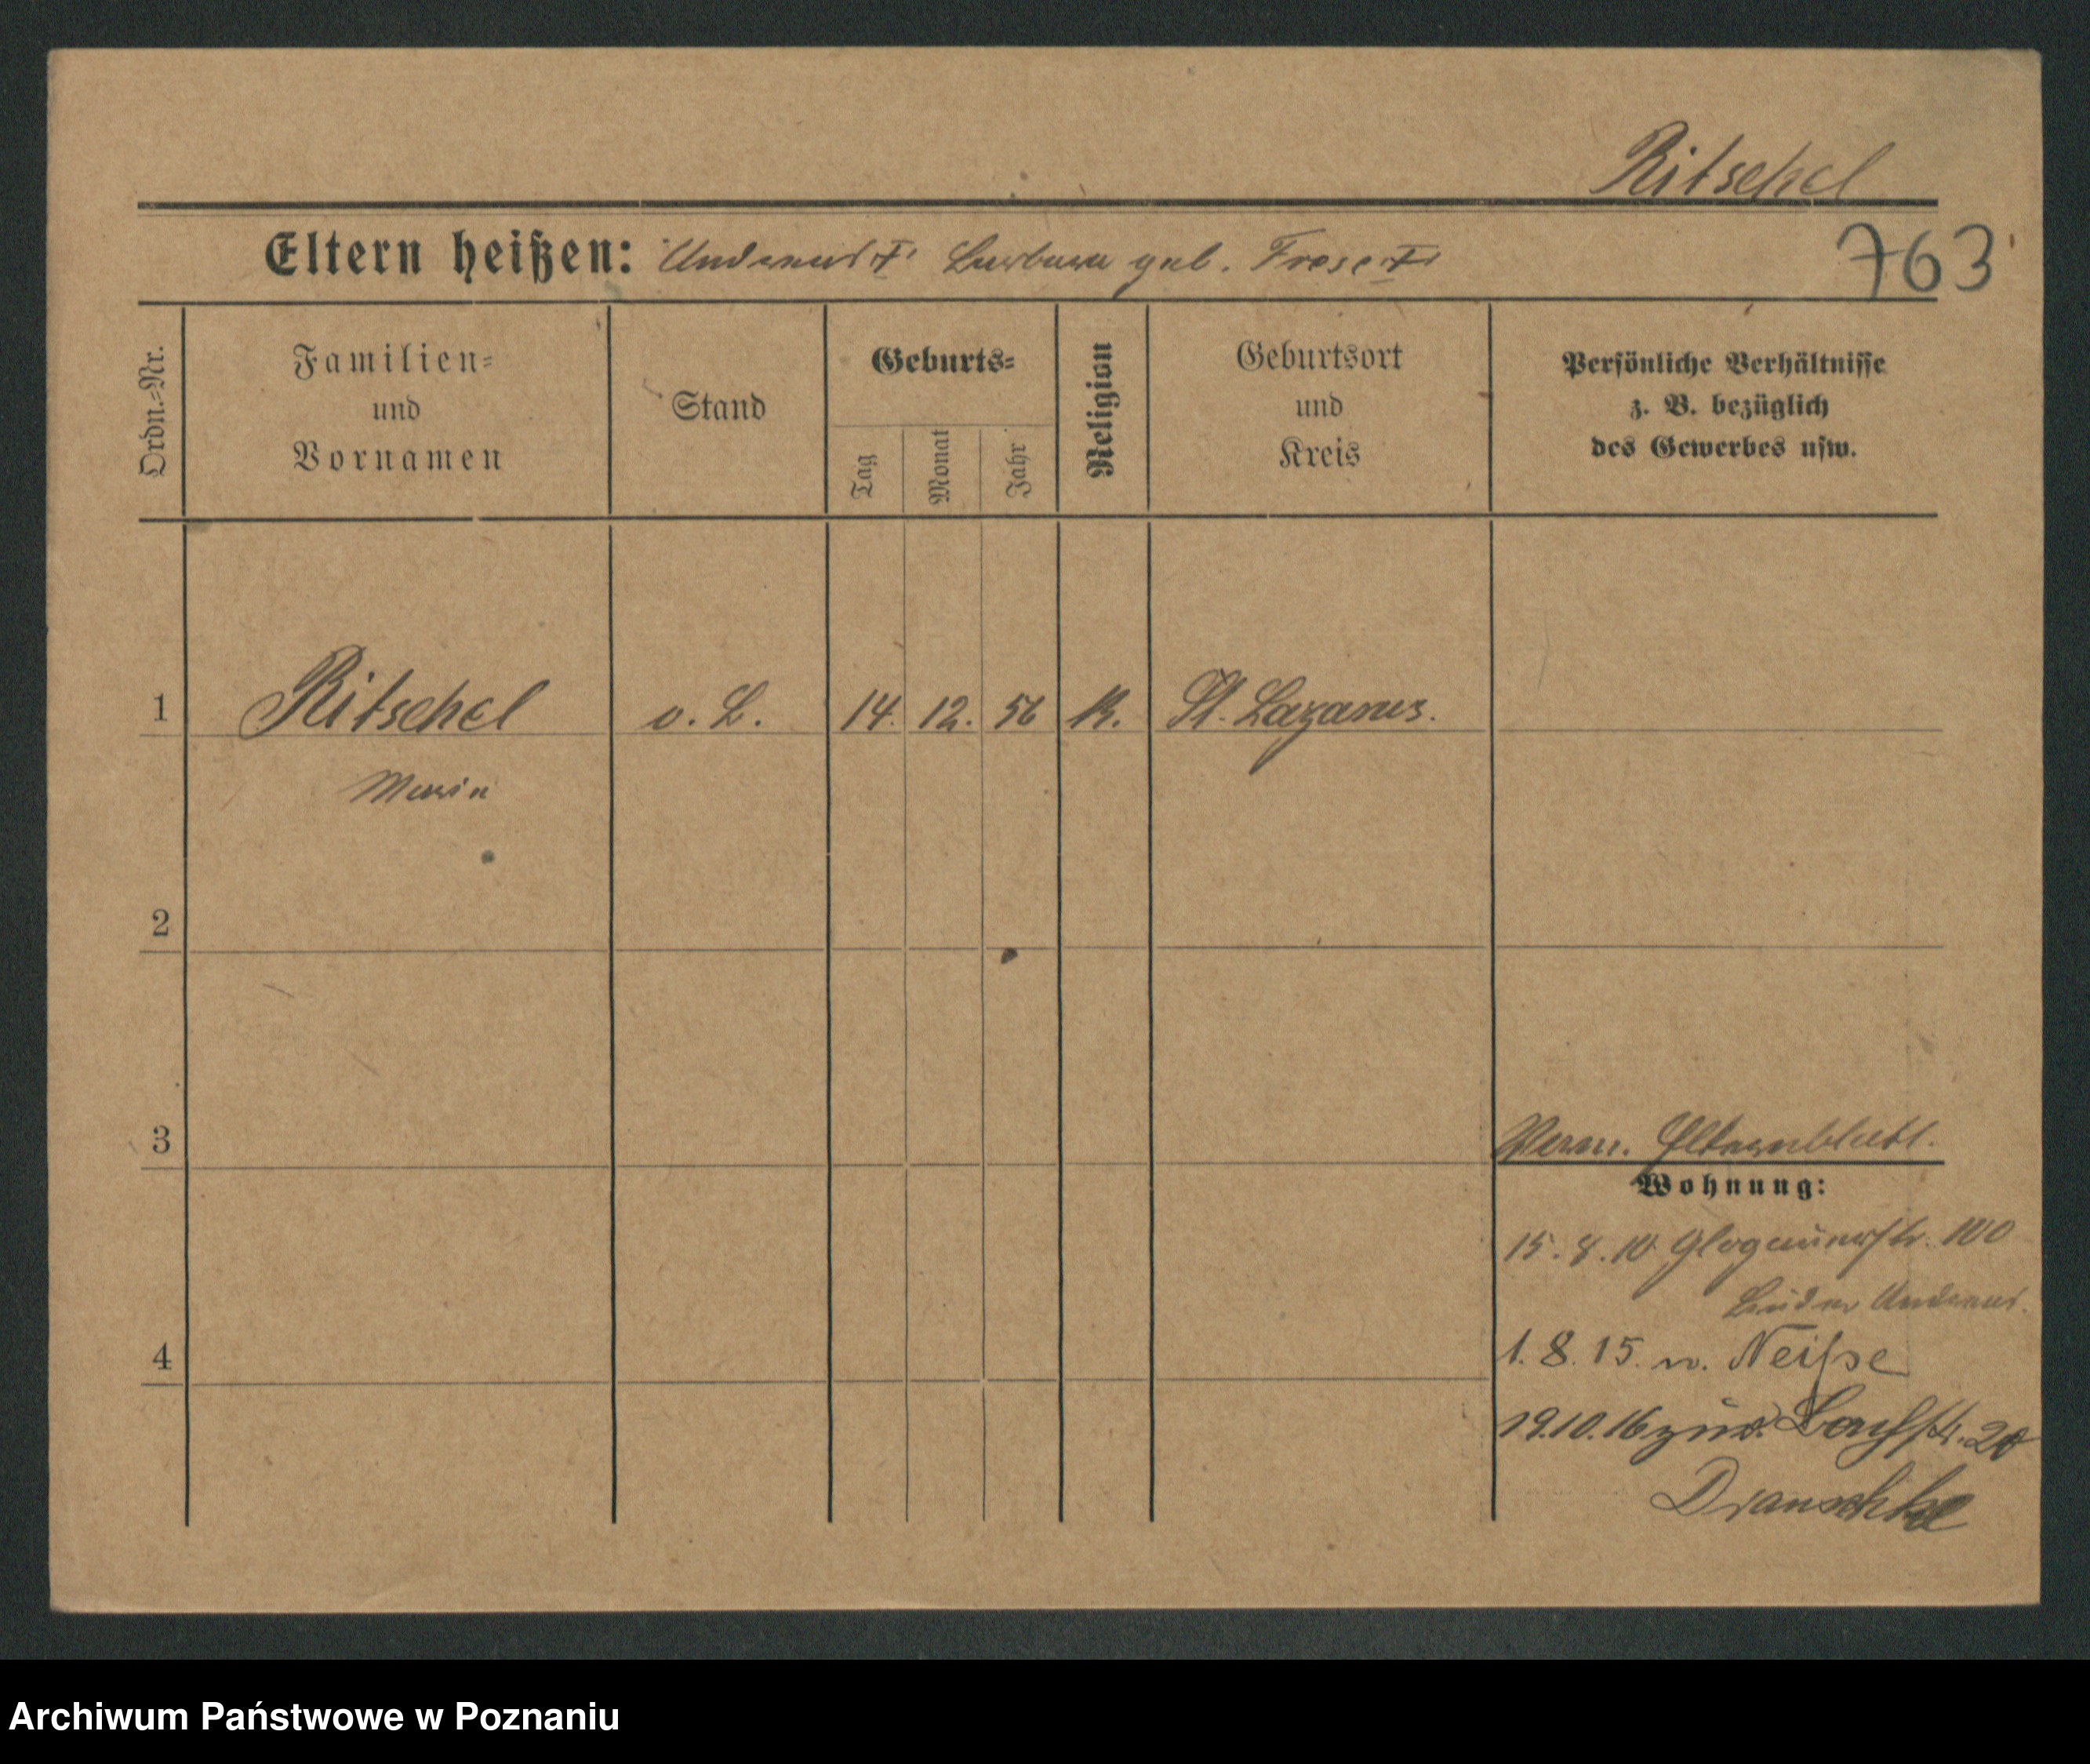 Ritschel
Eltern heißen: Andreas † Barbara geb. Frose †
763
Ordn.=Nr.
Familien=
und
Vornamen
Stand
Geburts=
Tag
Monat
Jahr
Religion
Geburtsort
und
Kreis
Persönliche Verhältnisse
z. B. bezüglich
des Gewerbes usw.
1 Ritschel o. L. 14. 12. 56 K. St. Lazarus.
Maria
2
3 Verm. Elternblatt.
Wohnung:
15. 8. 10 Glogauerstr. 100
Bruder Andreas.
4 1. 8. 15. n. Neiße
19.10.16 zur. 20
Archiwum Państwowe w Poznaniu